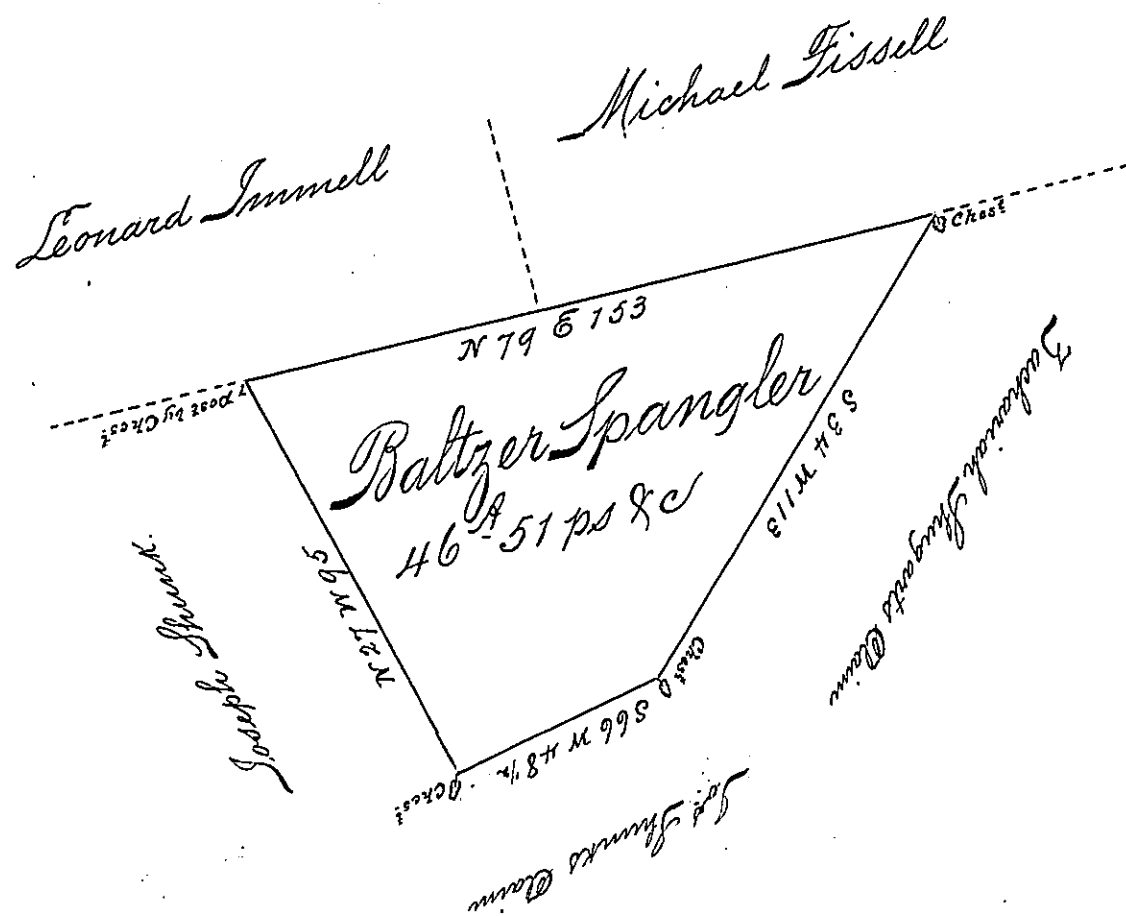 Michael Fissell
Leonard Immell
Chest
N 79 E 153
Post by Chest
Baltzer Spangler
46 A 51 ps & c
S 34 W 113
Zachariah Shugarts Claim
Joseph Shunk.
N 27 W 95
Chest
S 66 W 48 1/2
Chest
Jos Shunks Claim